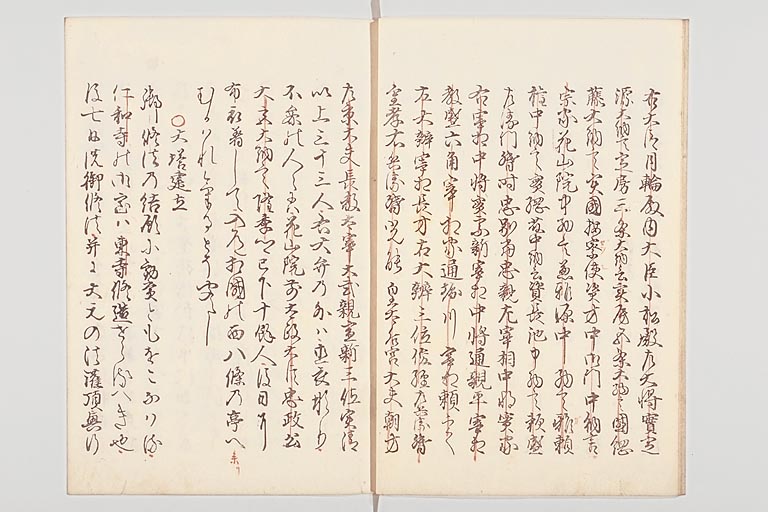 右大臣月輪殿内大臣小松殿左大将実定
源大納言定房三条大納言実房五条大納言国綱
藤大納言実国按察使資方中御門中納言
宗家花山院中納言兼雅源中納言雅頼
権中納言実綱藤中納言資長池中納言頼盛
左衛門督時忠別当忠親左宰相中将実家
右宰相中将実宗新宰相中将通親平宰相
教盛六角宰相家通堀川宰相頼定
左大辨宰相長方右大辨三位俊経左兵衛督
重孝右兵衛督光能皇太后宮大夫朝方
左京大夫長教太宰大弐親宣新三位実清
以上三十三人右大弁の外ハ直衣也
不参の人々ハ花山院前太政大臣忠雅公
大宮大納言隆季以下十余人後日に
布衣着して入道相国の西八条の亭へ
むかはれけるとそ聞えし
〇大塔建立
御修法の結願に勧賞ともをこなハる
仁和寺の御室ハ東寺修造せらるへき也
後七日御修法并に大元の法灌頂興行